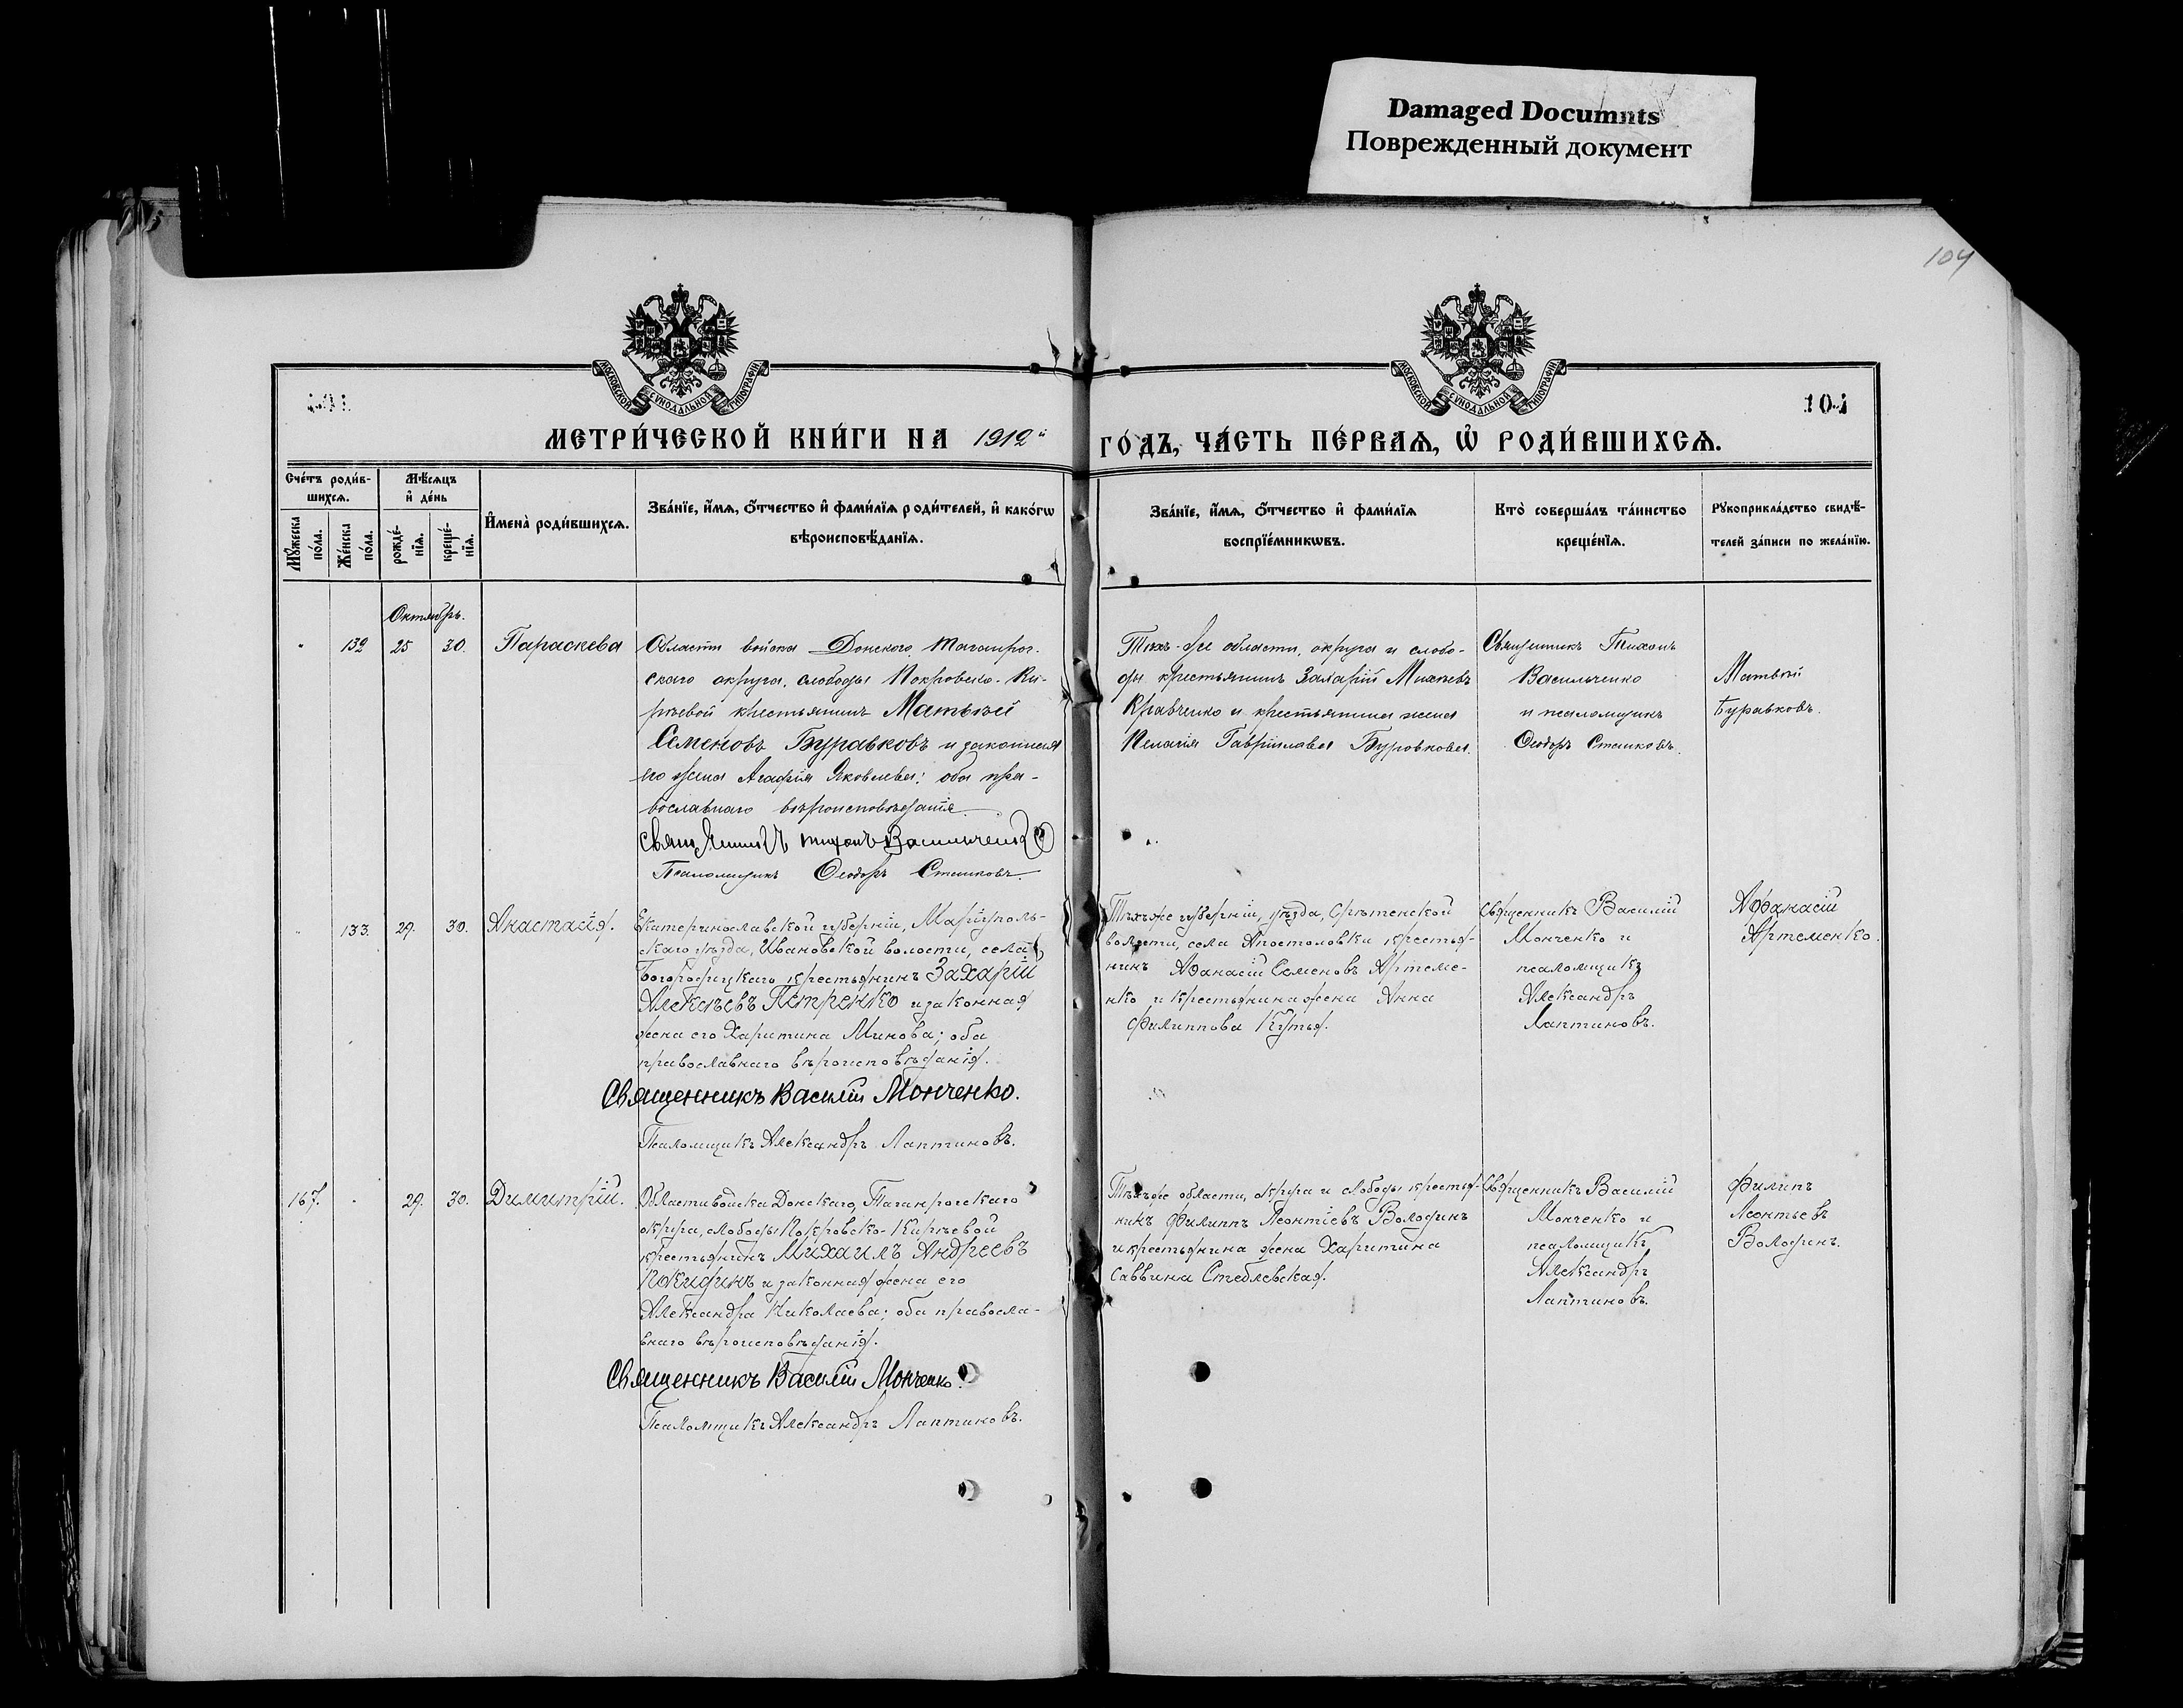 Damaged Documnts
Поврежденный документ
104
МОСКОВСКОЙ СѴНОДАЛЬНОЙ ТИПОГРАФІИ
МОСКОВСКОЙ СѴНОДАЛЬНОЙ ТИПОГРАФІИ
104
МЕТРИ́ЧЕСКОЙ КНИ́ГИ НА 1912й
ГО́ДЪ, ЧА́СТЬ ПЕ́РВАѦ, Ѽ РОДИ́ВШИХСѦ.
Сче́тъ роди́в-
шихсѧ.
Мѣ́сѧцъ
и҆ де́нь
Мꙋ́жеска
по́ла.
Же́нска
по́ла.
рожде́-
нїѧ.
креще́-
нїѧ.
И҆мена̀ роди́вшихсѧ.
Зва́нїе, и҆́мѧ, ѻ҆́тчество и҆ фами́лїѧ роди́телей, и҆ како́гѡ
вѣроисповѣ́данїѧ.
Зва́нїе, и҆́мѧ, ѻ҆́тчество и҆ фами́лїѧ
воспрїе́мникѡвъ.
Кто̀ соверша́лъ та́инство
креще́нїѧ.
Рꙋкоприкла́дство свидѣ́-
телей за́писи по жела́нїю.
Октябрь.
" 132 25 30. Параскева
Области войска Донского Таганрог-
скаго округа, слободы Покровско-Ки-
рѣевой крестьянинъ Матвѣй
Семеновъ Буравковъ и законная
его жена Агафія Яковлева; оба пра-
вославнаго вѣроисповѣданія.
Священникъ Тихонъ Васильченко
Псаломщикъ Ѳеодоръ Сташковъ.
Тѣхъ-же области, округа и слобо-
ды крестьянинъ Захарій Михѣевъ
Кравченко и крестьянина жена
Пелагія Гавріилова Буровкова.
Священникъ Тихонъ
Васильченко
и псаломщикъ
Ѳеодоръ Сташковъ.
Матвѣй
Буравковъ.
" 133. 29. 30. Анастасія.
Екатеринославской губерніи, Маріуполь-
скаго уѣзда, Ивановской волости, села
Богородицкаго крестьянинъ Захарій
Алексѣевъ Петренко и законная
жена его Харитина Минова; оба
православнаго вѣроисповѣданія.
Священникъ Василій Монченко.
Псаломщикъ Александръ Лаптиновъ.
Тѣхъ же губерніи, уѣзда, Срѣтенской
волости, села Апостоловки крестья-
нинъ Аѳанасій Семеновъ Артеме-
нко и крестьянина жена Анна
Филиппова Кутья.
Священникъ Василій
Монченко и
псаломщикъ
Александръ
Лаптиновъ.
Аѳанасій
Артеменко.
167. " 29. 30. Димитрій.
Области войска Донскаго, Таганрогскаго
округа, слободы Покровско-Кирѣевой
крестьянинъ Михаилъ Андреевъ
Покидинъ и законная жена его
Александра Николаева; оба правосла-
внаго вѣроисповѣданія.
Священникъ Василій Монченко.
Псаломщикъ Александръ Лаптиновъ.
Тѣхъ же области, округа и слободы крестья-
нинъ Филиппъ Леонтіевъ Володинъ
и крестьянина жена Харитина
Саввина Стеблевская.
Священникъ Василій
Монченко и
псаломщикъ
Александръ
Лаптиновъ.
Филипъ
Леонтьевъ
Володинъ.